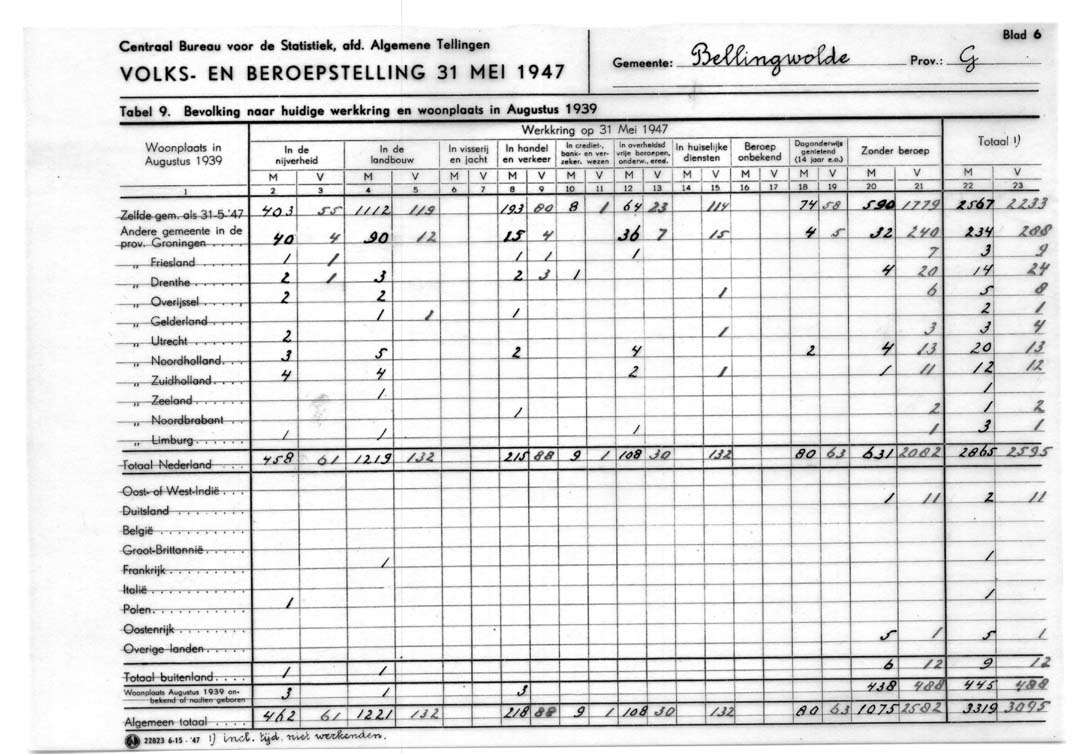 Centraal Bureau voor de Statistiek, afd. Algemene Tellingen
VOLKS- EN BEROEPSTELLING 31 MEI 1947
Gemeente: Bellingwolde Prov.: G
Blad 6
Tabel 9. Bevolking naar huidige werkkring en woonplaats in Augustus 1939
Woonplaats in Augustus 1939
Werkkring op 31 Mei 1947
Totaal 1)
In de nijverheid
In de landbouw
In visserij en jacht
In handel en verkeer
In crediet-, bank- en verzeker. wezen
In overheidsd vrije beroepen, onderw., ered.
In huiselijke diensten
Beroep onbekend
Dagonderwijs genietend (14 jaar e.o.)
Zonder beroep
M V M V M V M V M V M V M V M V M V M V M V
1 2 3 4 5 6 7 8 9 10 11 12 13 14 15 16 17 18 19 20 21 22 23
Zelfde gem. als 31-5-'47 403 55 1112 119 193 80 8 1 64 23 114 74 58 590 1779 2567 2233
Andere gemeente in de
prov. Groningen 40 4 90 12 15 4 36 7 15 4 5 32 240 234 288
„ Friesland 1 1 1 1 1 7 3 9
„ Drenthe 2 1 3 2 3 1 4 20 14 24
„ Overijssel 2 2 1 6 5 8
„ Gelderland 1 1 1 2 1
„ Utrecht 2 1 3 3 4
„ Noordholland 3 5 2 4 2 4 13 20 13
„ Zuidholland 4 4 2 1 1 11 12 12
„ Zeeland 1 1
„ Noordbrabant 1 2 1 2
„ Limburg 1 1 1 1 3 1
Totaal Nederland 458 61 1219 132 215 88 9 1 108 30 132 80 63 631 2082 2865 2595
Oost- of West-Indië 1 11 2 11
Duitsland
België
Groot-Brittannië
Frankrijk 1 1
Italië
Polen 1 1
Oostenrijk
Overige landen 5 1 5 1
Totaal buitenland 1 1 6 12 9 12
Woonplaats Augustus 1939 onbekend of nadien geboren 3 1 3 438 488 445 488
Algemeen totaal 462 61 1221 132 218 88 9 1 108 30 132 80 63 1075 2582 3319 3095
22823 6-15 - '47 1) incl. tijd. niet werkenden.